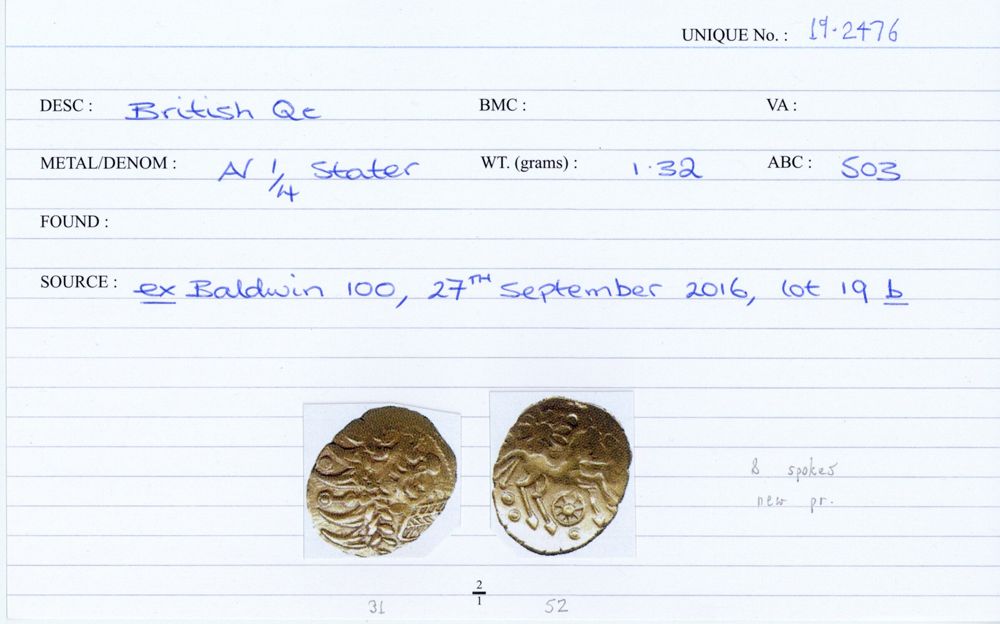 UNIQUE No. : 19.2476
DESC : British Qc BMC : VA :
METAL/DENOM : AV 1/4 Stater WT. (grams) : 1.32 ABC : 503
FOUND :
SOURCE : ex Baldwin 100, 27TH September 2016, lot 19 b
8 spokes
new pr.
2/1
31 52